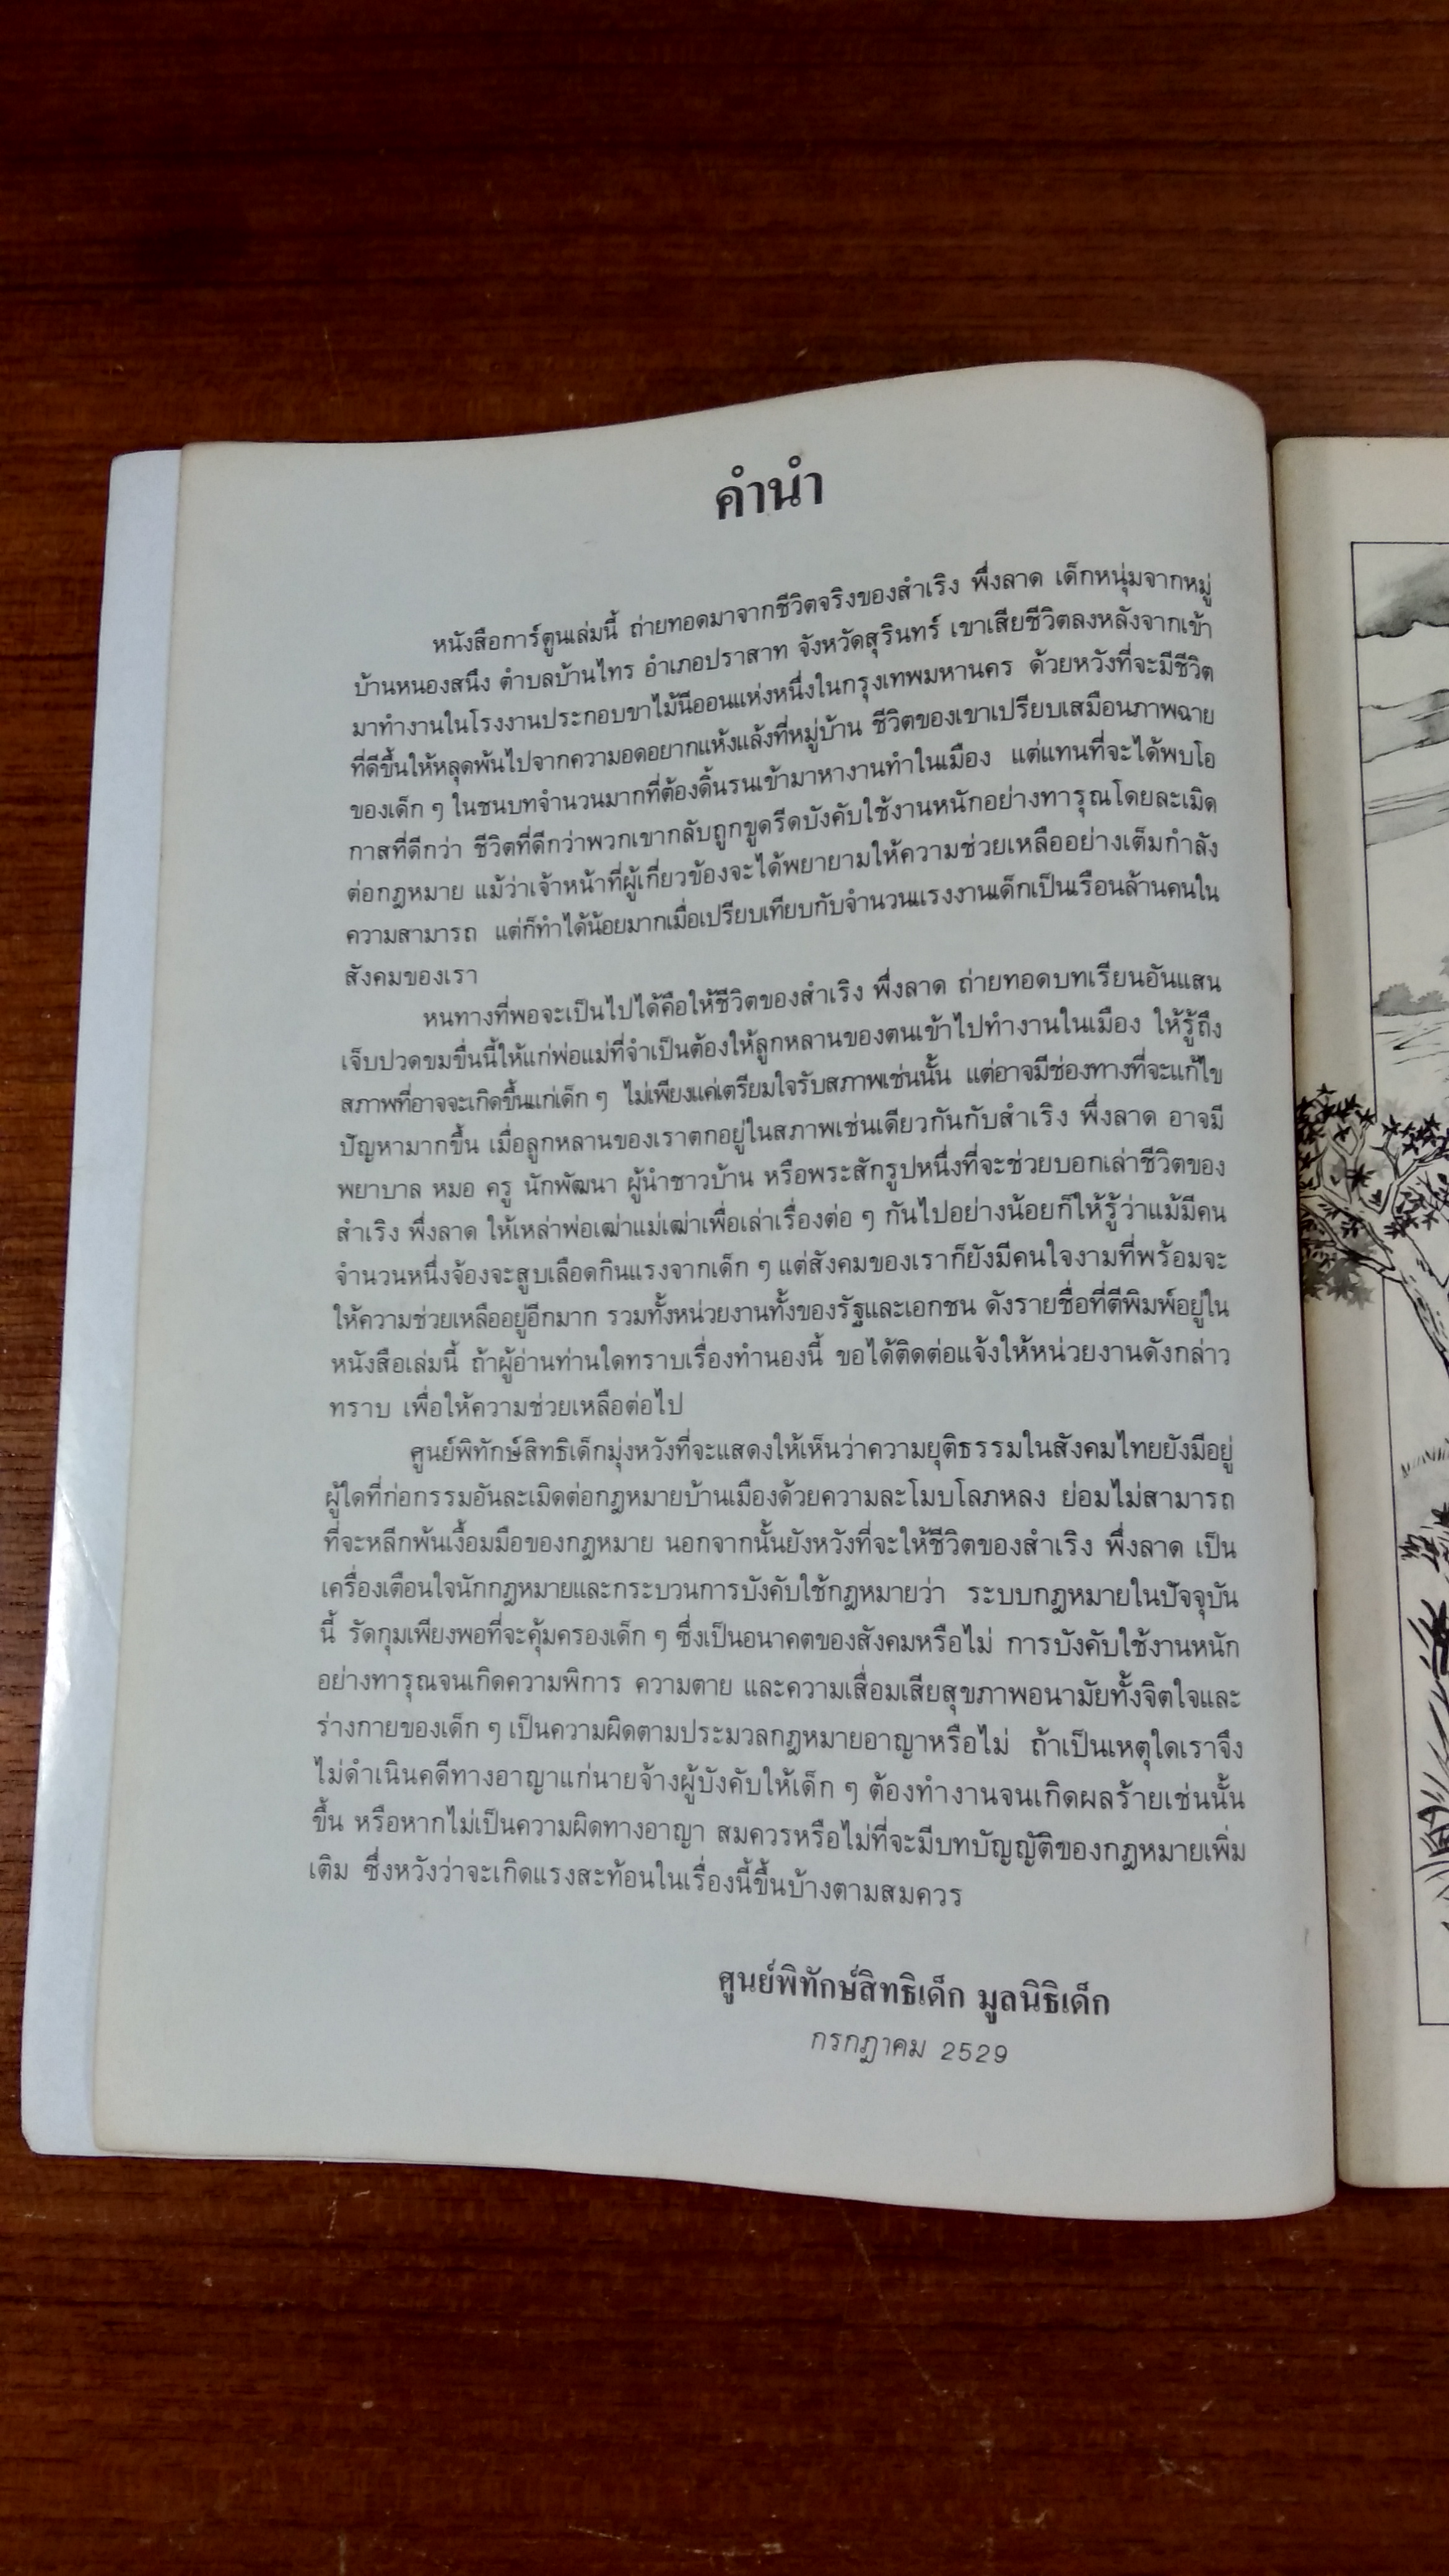 คำนำ
หนังสือการ์ตูนเล่มนี้ ถ่ายทอดมาจากชีวิตจริงของสำเริง พึ่งลาด เด็กหนุ่มจากหมู่
บ้านหนองสนึง ตำบลบ้านไทร อำเภอปราสาท จังหวัดสุรินทร์ เขาเสียชีวิตลงหลังจากเข้า
มาทำงานในโรงงานประกอบขาไม้นีออนแห่งหนึ่งในกรุงเทพมหานคร ด้วยหวังที่จะมีชีวิต
ที่ดีขึ้นให้หลุดพ้นไปจากความอดอยากแห้งแล้งที่หมู่บ้าน ชีวิตของเขาเปรียบเสมือนภาพฉาย
ของเด็ก ๆ ในชนบทจำนวนมากที่ต้องดิ้นรนเข้ามาหางานทำในเมือง แต่แทนที่จะได้พบโอ
กาสที่ดีกว่า ชีวิตที่ดีกว่าพวกเขากลับถูกขูดรีดบังคับใช้งานหนักอย่างทารุณโดยละเมิด
ต่อกฎหมาย แม้ว่าเจ้าหน้าที่ผู้เกี่ยวข้องจะได้พยายามให้ความช่วยเหลืออย่างเต็มกำลัง
ความสามารถ แต่ก็ทำได้น้อยมากเมื่อเปรียบเทียบกับจำนวนแรงงานเด็กเป็นเรือนล้านคนใน
สังคมของเรา
หนทางที่พอจะเป็นไปได้คือให้ชีวิตของสำเริง พึ่งลาด ถ่ายทอดบทเรียนอันแสน
เจ็บปวดขมขื่นนี้ให้แก่พ่อแม่ที่จำเป็นต้องให้ลูกหลานของตนเข้าไปทำงานในเมือง ให้รู้ถึง
สภาพที่อาจจะเกิดขึ้นแก่เด็ก ๆ ไม่เพียงแค่เตรียมใจรับสภาพเช่นนั้น แต่อาจมีช่องทางที่จะแก้ไข
ปัญหามากขึ้น เมื่อลูกหลานของเราตกอยู่ในสภาพเช่นเดียวกันกับสำเริง พึ่งลาด อาจมี
พยาบาล หมอ ครู นักพัฒนา ผู้นำชาวบ้าน หรือพระสักรูปหนึ่งที่จะช่วยบอกเล่าชีวิตของ
สำเริง พึ่งลาด ให้เหล่าพ่อเฒ่าแม่เฒ่าเพื่อเล่าเรื่องต่อ ๆ กันไปอย่างน้อยก็ให้รู้ว่าแม้มีคน
จำนวนหนึ่งจ้องจะสูบเลือดกินแรงจากเด็ก ๆ แต่สังคมของเราก็ยังมีคนใจงามที่พร้อมจะ
ให้ความช่วยเหลืออยู่อีกมาก รวมทั้งหน่วยงานทั้งของรัฐและเอกชน ดังรายชื่อที่ตีพิมพ์อยู่ใน
หนังสือเล่มนี้ ถ้าผู้อ่านท่านใดทราบเรื่องทำนองนี้ ขอได้ติดต่อแจ้งให้หน่วยงานดังกล่าว
ทราบ เพื่อให้ความช่วยเหลือต่อไป
ศูนย์พิทักษ์สิทธิเด็กมุ่งหวังที่จะแสดงให้เห็นว่าความยุติธรรมในสังคมไทยยังมีอยู่
ผู้ใดที่ก่อกรรมอันละเมิดต่อกฎหมายบ้านเมืองด้วยความละโมบโลภหลง ย่อมไม่สามารถ
ที่จะหลีกพ้นเงื้อมมือของกฎหมาย นอกจากนั้นยังหวังที่จะให้ชีวิตของสำเริง พึ่งลาด เป็น
เครื่องเตือนใจนักกฎหมายและกระบวนการบังคับใช้กฎหมายว่า ระบบกฎหมายในปัจจุบัน
นี้ รัดกุมเพียงพอที่จะคุ้มครองเด็ก ๆ ซึ่งเป็นอนาคตของสังคมหรือไม่ การบังคับใช้งานหนัก
อย่างทารุณจนเกิดความพิการ ความตาย และความเสื่อมเสียสุขภาพอนามัยทั้งจิตใจและ
ร่างกายของเด็ก ๆ เป็นความผิดตามประมวลกฎหมายอาญาหรือไม่ ถ้าเป็นเหตุใดเราจึง
ไม่ดำเนินคดีทางอาญาแก่นายจ้างผู้บังคับให้เด็ก ๆ ต้องทำงานจนเกิดผลร้ายเช่นนั้น
ขึ้น หรือหากไม่เป็นความผิดทางอาญา สมควรหรือไม่ที่จะมีบทบัญญัติของกฎหมายเพิ่ม
เติม ซึ่งหวังว่าจะเกิดแรงสะท้อนในเรื่องนี้ขึ้นบ้างตามสมควร
ศูนย์พิทักษ์สิทธิเด็ก มูลนิธิเด็ก
กรกฎาคม 2529